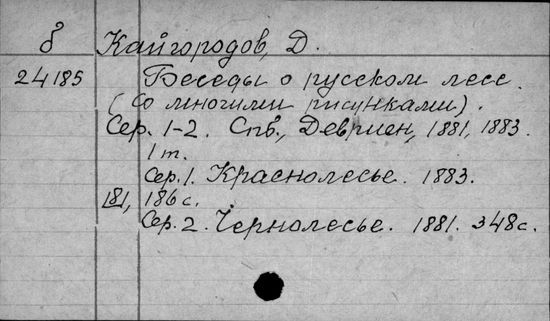 б Кайгородов, Д.
24185 Беседы о русском лесе.
(Со многими рисунками).
Сер. 1-2. Спб., Девриен, 1881, 1883.
1 т.
Сер. 1. Краснолесье. 1883.
181, 186 с.
Сер. 2. Чернолесье. 1881. 348 с.